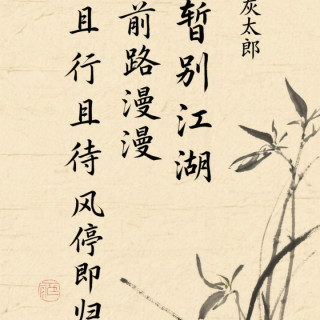 灰太郎
暂别江湖
前路漫漫
且行且待
风停即归